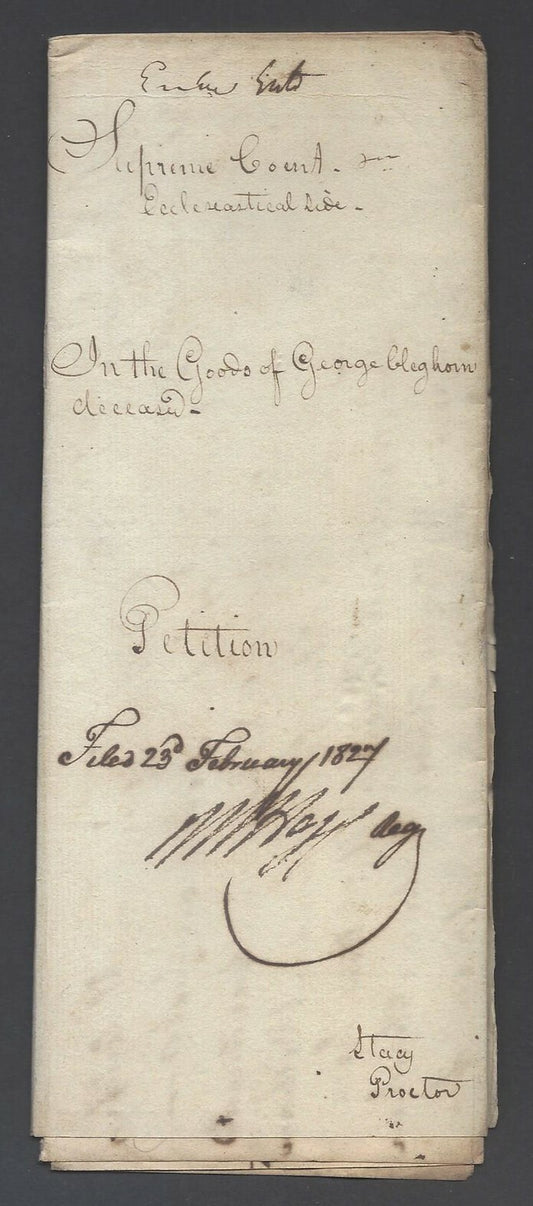 Supreme Court -
Ecclesiastical Side -
In the Goods of George Cleghorn
deceased -
Petition
Filed 23d February 1827
Reg
Stacy
Proctor